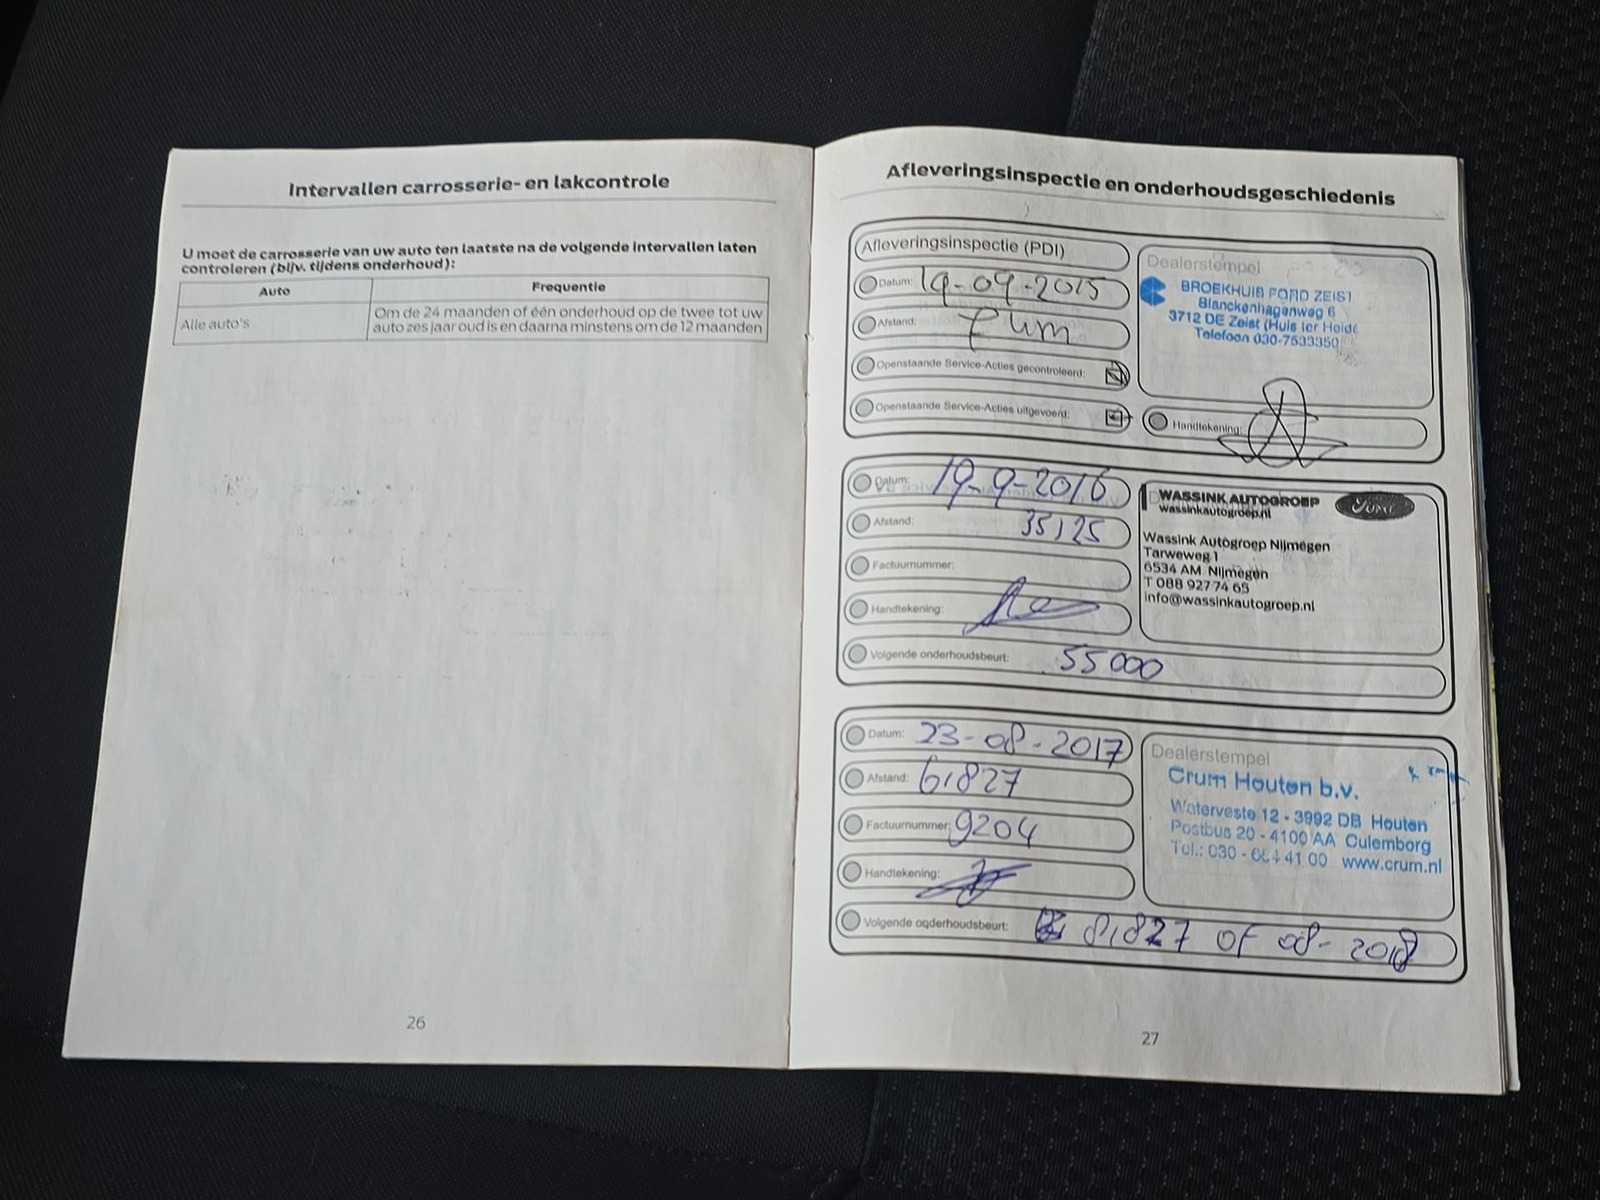 Intervallen carrosserie- en lakcontrole
U moet de carrosserie van uw auto ten laatste na de volgende intervallen laten
controleren (bijv. tijdens onderhoud):
Auto
Frequentie
Alle auto's
Om de 24 maanden of één onderhoud op de twee tot uw
auto zes jaar oud is en daarna minstens om de 12 maanden
26
Afleveringsinspectie en onderhoudsgeschiedenis
Afleveringsinspectie (PDI)
Datum: 19-09-2015
Afstand: 7 km
Openstaande Service-Acties gecontroleerd:
Openstaande Service-Acties uitgevoerd:
Dealerstempel
BROEKHUIS FORD ZEIST
Blanckenhagenweg 6
3712 DE Zeist (Huis ter Heide
Telefoon 030-7533350
Handtekening:
Datum: 19-9-2016
Afstand: 35125
Factuurnummer:
Handtekening:
Volgende onderhoudsbeurt: 55000
WASSINK AUTOGROEP
wassinkautogroep.nl
Ford
Wassink Autogroep Nijmegen
Tarweweg 1
6534 AM Nijmegen
T 088 927 74 65
info@wassinkautogroep.nl
Datum: 23-08-2017
Afstand: 61827
Factuurnummer: 9204
Handtekening:
Volgende onderhoudsbeurt: 81827 of 08-2018
Dealerstempel
Crum Houten b.v.
Waterveste 12 - 3992 DB Houten
Postbus 20 - 4100 AA Culemborg
Tel.: 030 - 634 41 00 www.crum.nl
27